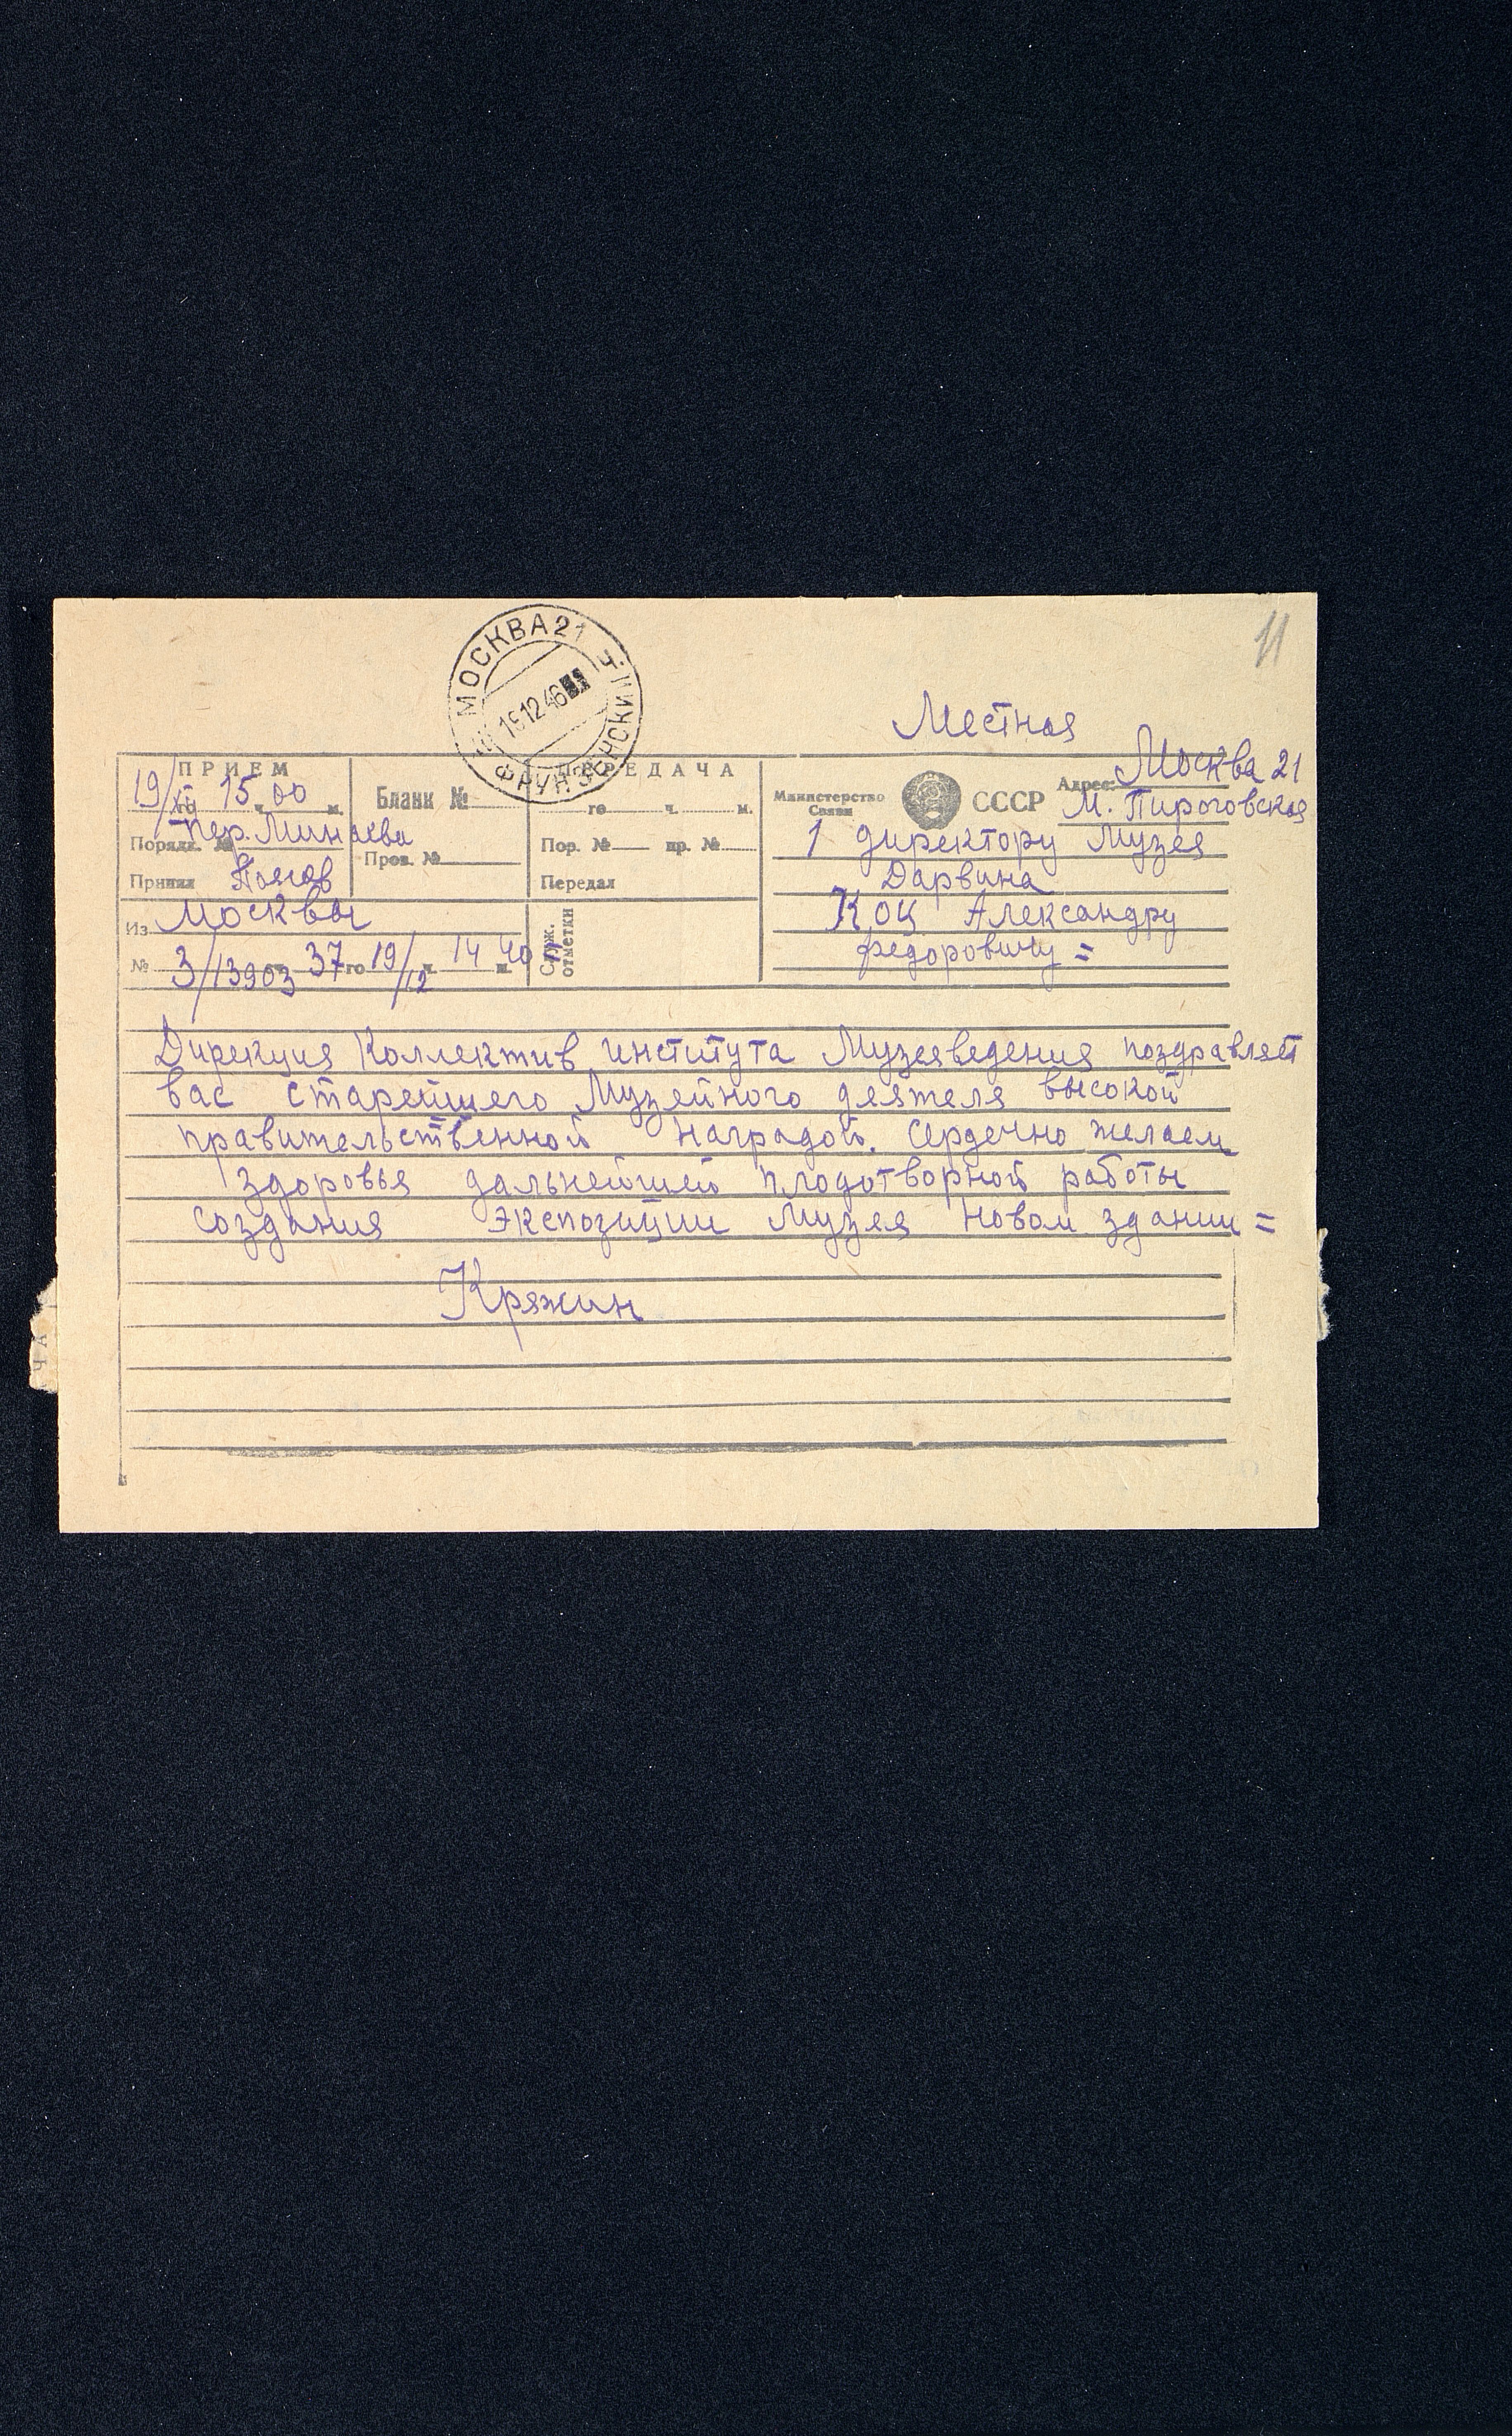 11
МОСКВА 21
19 12 46
ФРУНЗЕНСКИЙ
Местная
ПРИЕМ
19/XII го 15 ч. 00 м.
Бланк №
ПЕРЕДАЧА
го ч. м.
Министерство Связи
СССР
Адрес: Москва 21
М. Пироговская
Порядк. № Пер. Минаева
Пров. №
Пор. № пр. №
1 директору Музея
Принял
Передал
Дарвина
Из Москвы
Служ. отметки
Коц Александру
№ 3/13903 37 го 19/12 ч. 14 40 м.
федоровичу =
Дирекция Коллектив института Музееведения поздравляет
вас старейшего Музейного деятеля высокой
правительственной наградой. Сердечно желаем
здоровья дальнейшей плодотворной работы
создания экспозиции Музея новом здании =
Кряжин
ЧА